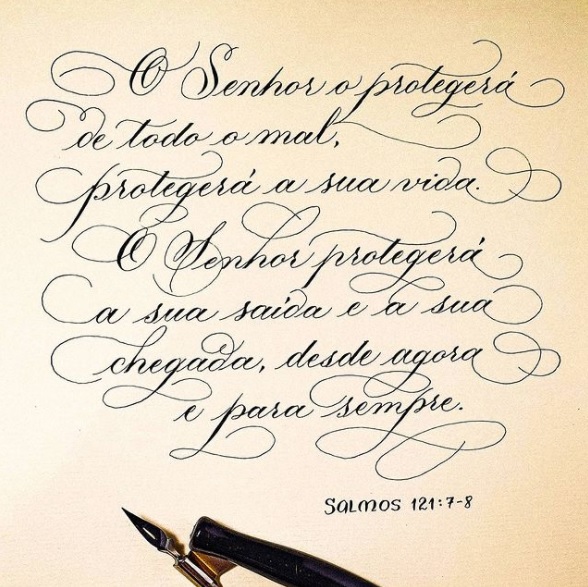 O Senhor o protegerá
de todo o mal,
protegerá a sua vida.
O Senhor protegerá
a sua saída e a sua
chegada, desde agora
e para sempre.
SALMOS 121:7-8